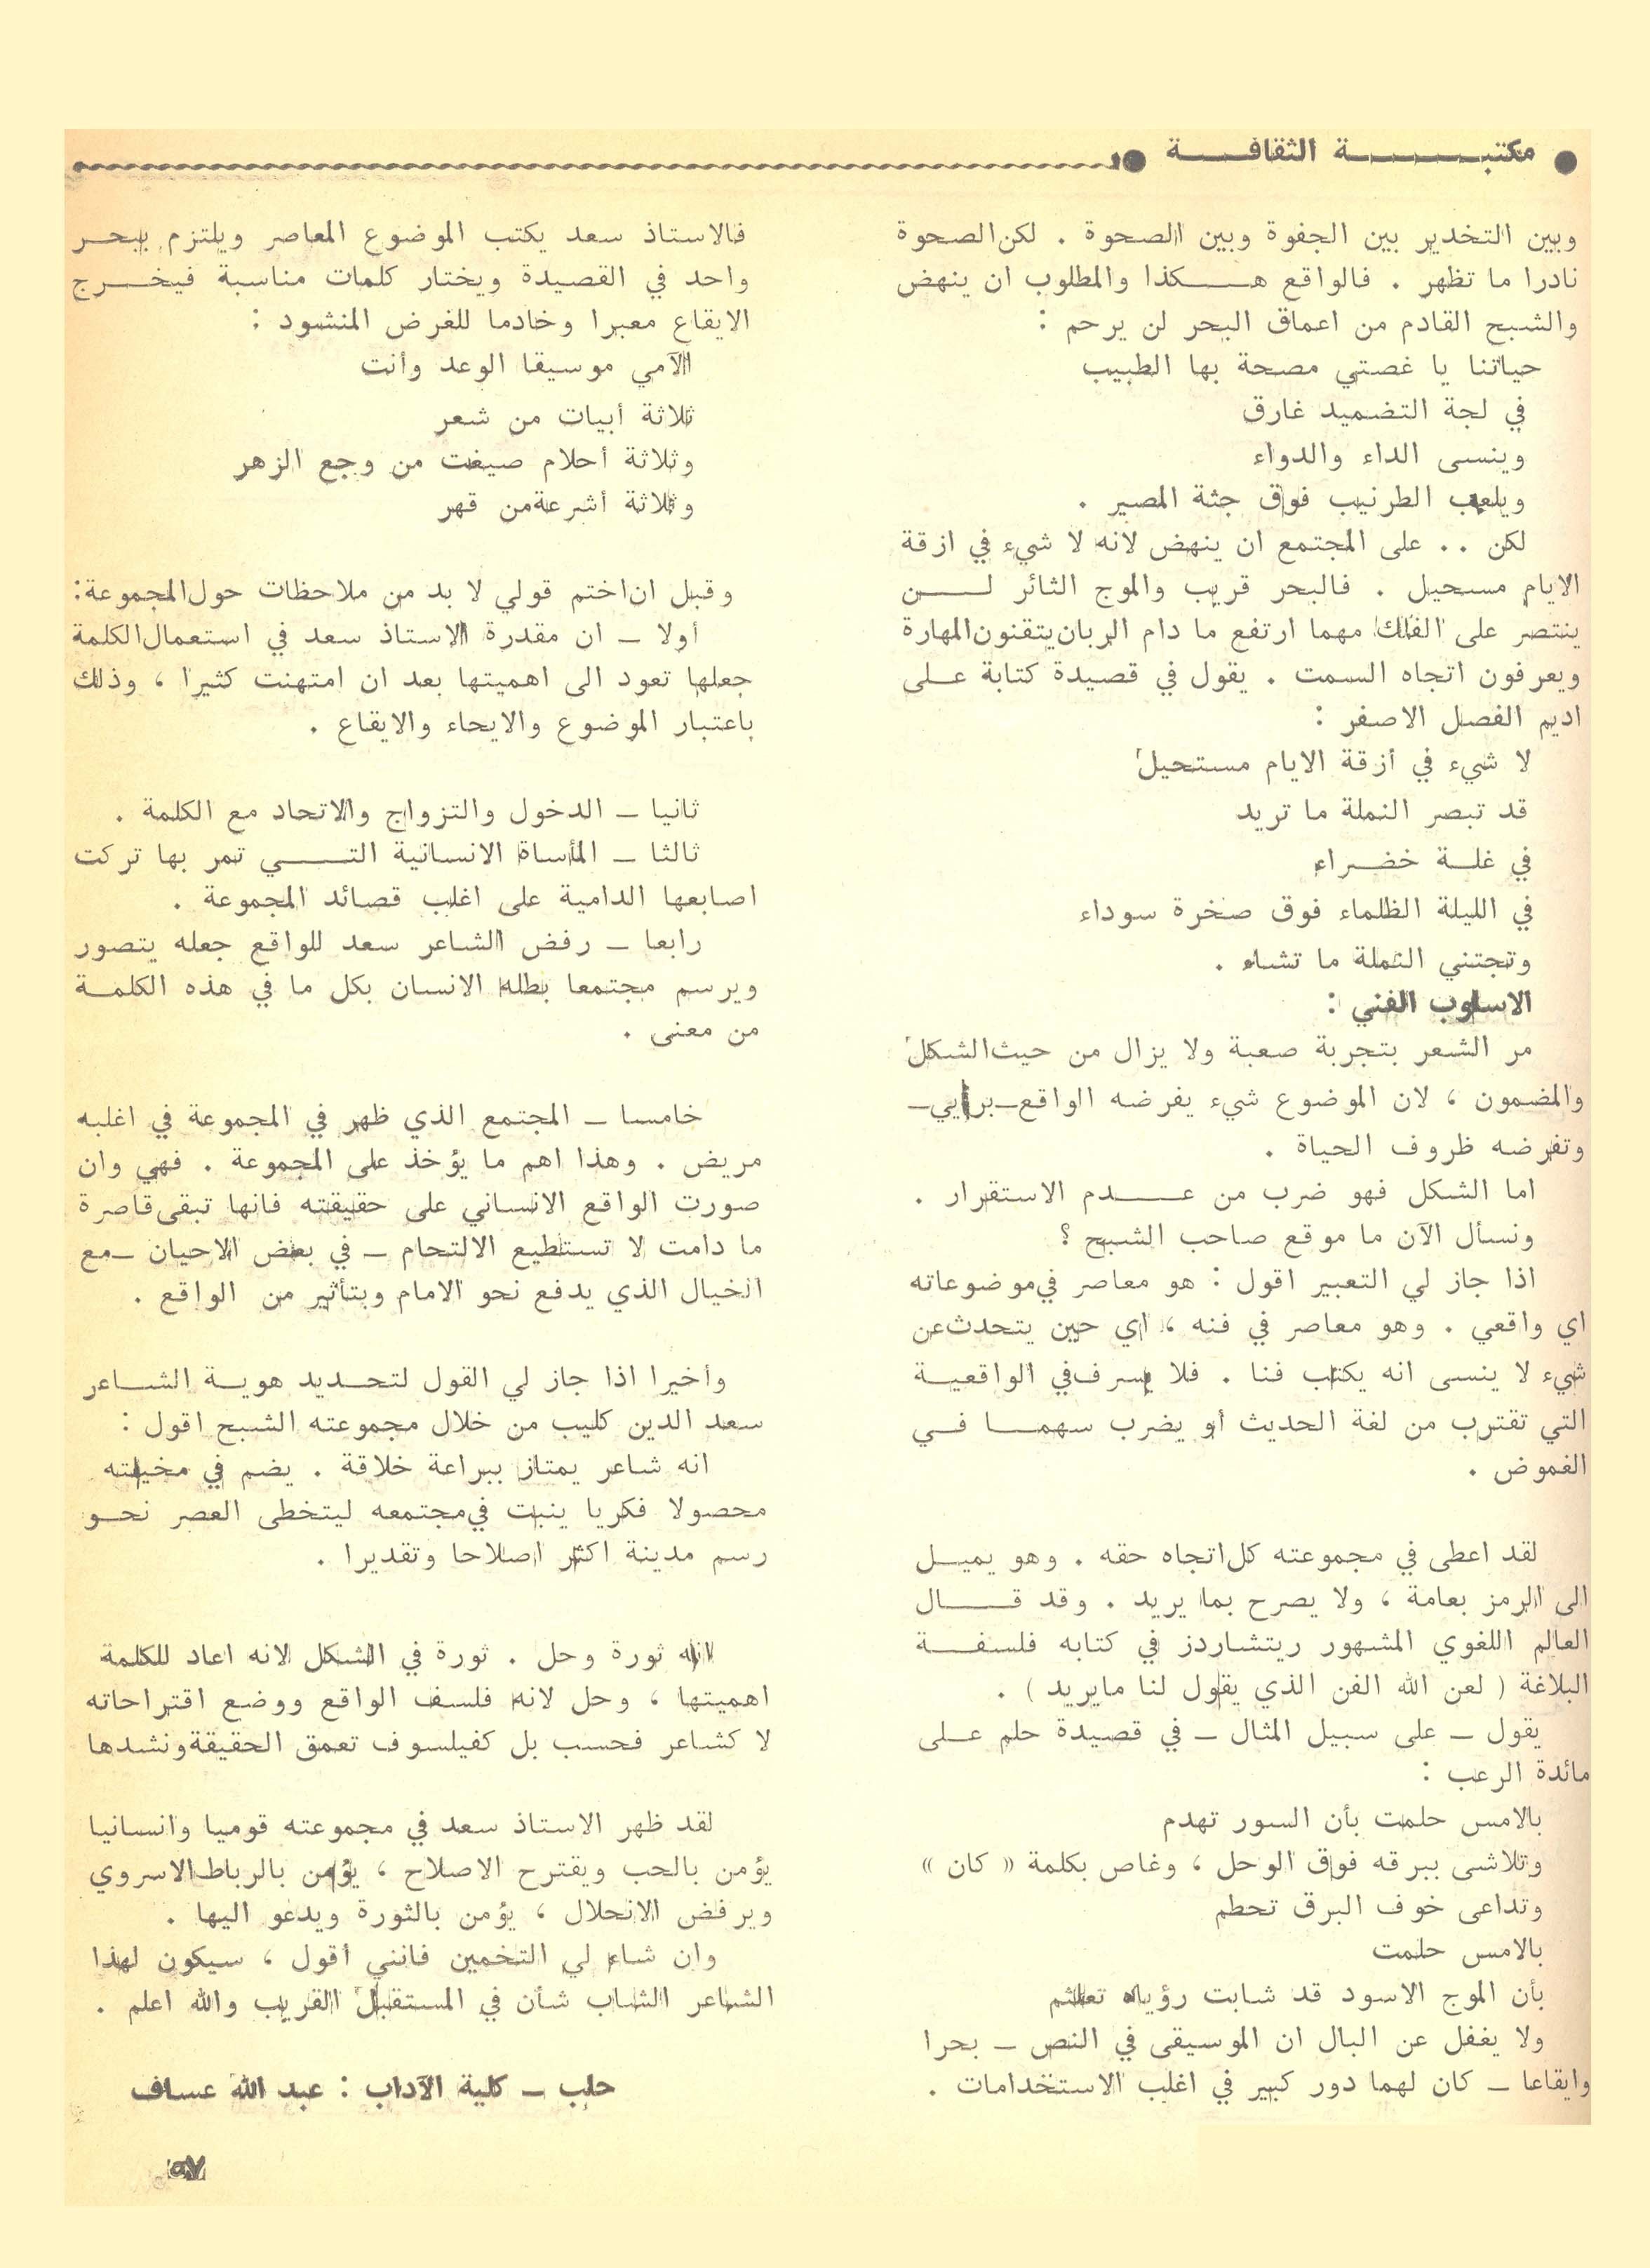 مكتبة الثقافة
وبين التخدير بين الجفوة وبين الصحوة . لكن الصحوة
نادرا ما تظهر . فالواقع هكذا والمطلوب ان ينهض
والشبح القادم من اعماق البحر لن يرحم :
حياتنا يا غصتي مصحة بها الطبيب
في لجة التضميد غارق
وينسى الداء والدواء
ويلعب الطرنيب فوق جثة المصير .
لكن .. على المجتمع ان ينهض لانه لا شيء في ازقة
الايام مستحيل . فالبحر قريب والموج الثائر لن
ينتصر على الفلك مهما ارتفع ما دام الربان يتقنون المهارة
ويعرفون اتجاه السمت . يقول في قصيدة كتابة على
اديم الفصل الاصفر :
لا شيء في أزقة الايام مستحيل
قد تبصر النملة ما تريد
في غلة خضراء
في الليلة الظلماء فوق صخرة سوداء
وتجتني النملة ما تشاء .
الاسلوب الفني :
مر الشعر بتجربة صعبة ولا يزال من حيث الشكل
والمضمون ، لان الموضوع شيء يفرضه الواقع ــ برأيي ــ
وتفرضه ظروف الحياة .
اما الشكل فهو ضرب من عدم الاستقرار .
ونسأل الآن ما موقع صاحب الشبح ؟
اذا جاز لي التعبير اقول : هو معاصر في موضوعاته
اي واقعي . وهو معاصر في فنه ، اي حين يتحدث عن
شيء لا ينسى انه يكتب فنا . فلا يسرف في الواقعية
التي تقترب من لغة الحديث أو يضرب سهما في
الغموض .
لقد اعطى في مجموعته كل اتجاه حقه . وهو يميل
الى الرمز بعامة ، ولا يصرح بما يريد . وقد قال
العالم اللغوي المشهور ريتشاردز في كتابه فلسفة
البلاغة ( لعن الله الفن الذي يقول لنا مايريد ) .
يقول ــ على سبيل المثال ــ في قصيدة حلم على
مائدة الرعب :
بالامس حلمت بأن السور تهدم
وتلاشى ببرقه فوق الوحل ، وغاص بكلمة « كان »
وتداعى خوف البرق تحطم
بالامس حلمت
بأن الموج الاسود قد شابت رؤياه
ولا يغفل عن البال ان الموسيقى في النص ــ بحرا
وايقاعا ــ كان لهما دور كبير في اغلب الاستخدامات .
فالاستاذ سعد يكتب الموضوع المعاصر ويلتزم ببحر
واحد في القصيدة ويختار كلمات مناسبة فيخرج
الايقاع معبرا وخادما للغرض المنشود :
الآمي موسيقا الوعد وأنت
ثلاثة أبيات من شعر
وثلاثة أحلام صيغت من وجع الزهر
وثلاثة أشرعة من قهر
وقبل ان اختم قولي لا بد من ملاحظات حول المجموعة :
أولا ــ ان مقدرة الاستاذ سعد في استعمال الكلمة
جعلها تعود الى اهميتها بعد ان امتهنت كثيرا ، وذلك
باعتبار الموضوع والايحاء والايقاع .
ثانيا ــ الدخول والتزواج والاتحاد مع الكلمة .
ثالثا ــ المأساة الانسانية التي تمر بها تركت
اصابعها الدامية على اغلب قصائد المجموعة .
رابعا ــ رفض الشاعر سعد للواقع جعله يتصور
ويرسم مجتمعا بطله الانسان بكل ما في هذه الكلمة
من معنى .
خامسا ــ المجتمع الذي ظهر في المجموعة في اغلبه
مريض . وهذا اهم ما يؤخذ على المجموعة . فهي وان
صورت الواقع الانساني على حقيقته فانها تبقى قاصرة
ما دامت لا تستطيع الالتحام ــ في بعض الاحيان ــ مع
الخيال الذي يدفع نحو الامام وبتأثير من الواقع .
وأخيرا اذا جاز لي القول لتحديد هوية الشاعر
سعد الدين كليب من خلال مجموعته الشبح اقول :
انه شاعر يمتاز ببراعة خلاقة . يضم في مخيلته
محصولا فكريا ينبت في مجتمعه ليتخطى العصر نحو
رسم مدينة اكثر اصلاحا وتقديرا .
انه ثورة وحل . ثورة في الشكل لانه اعاد للكلمة
اهميتها ، وحل لانه فلسف الواقع ووضع اقتراحاته
لا كشاعر فحسب بل كفيلسوف تعمق الحقيقة ونشدها
لقد ظهر الاستاذ سعد في مجموعته قوميا وانسانيا
يؤمن بالحب ويقترح الاصلاح ، يؤمن بالرباط الاسروي
ويرفض الانحلال ، يؤمن بالثورة ويدعو اليها .
وان شاء لي التخمين فانني أقول ، سيكون لهذا
الشاعر الشاب شأن في المستقبل القريب والله اعلم .
حلب ــ كلية الآداب : عبد الله عساف
٥٧